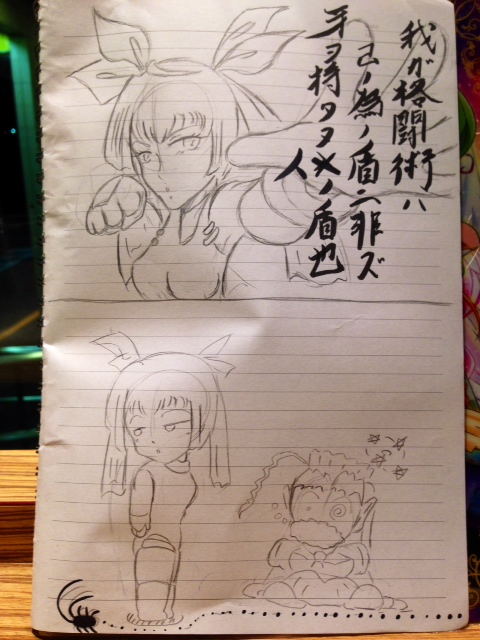 我が格闘術ハ
己ノ為ノ盾ニ非ズ
牙ヲ持タヌ人ノ盾也